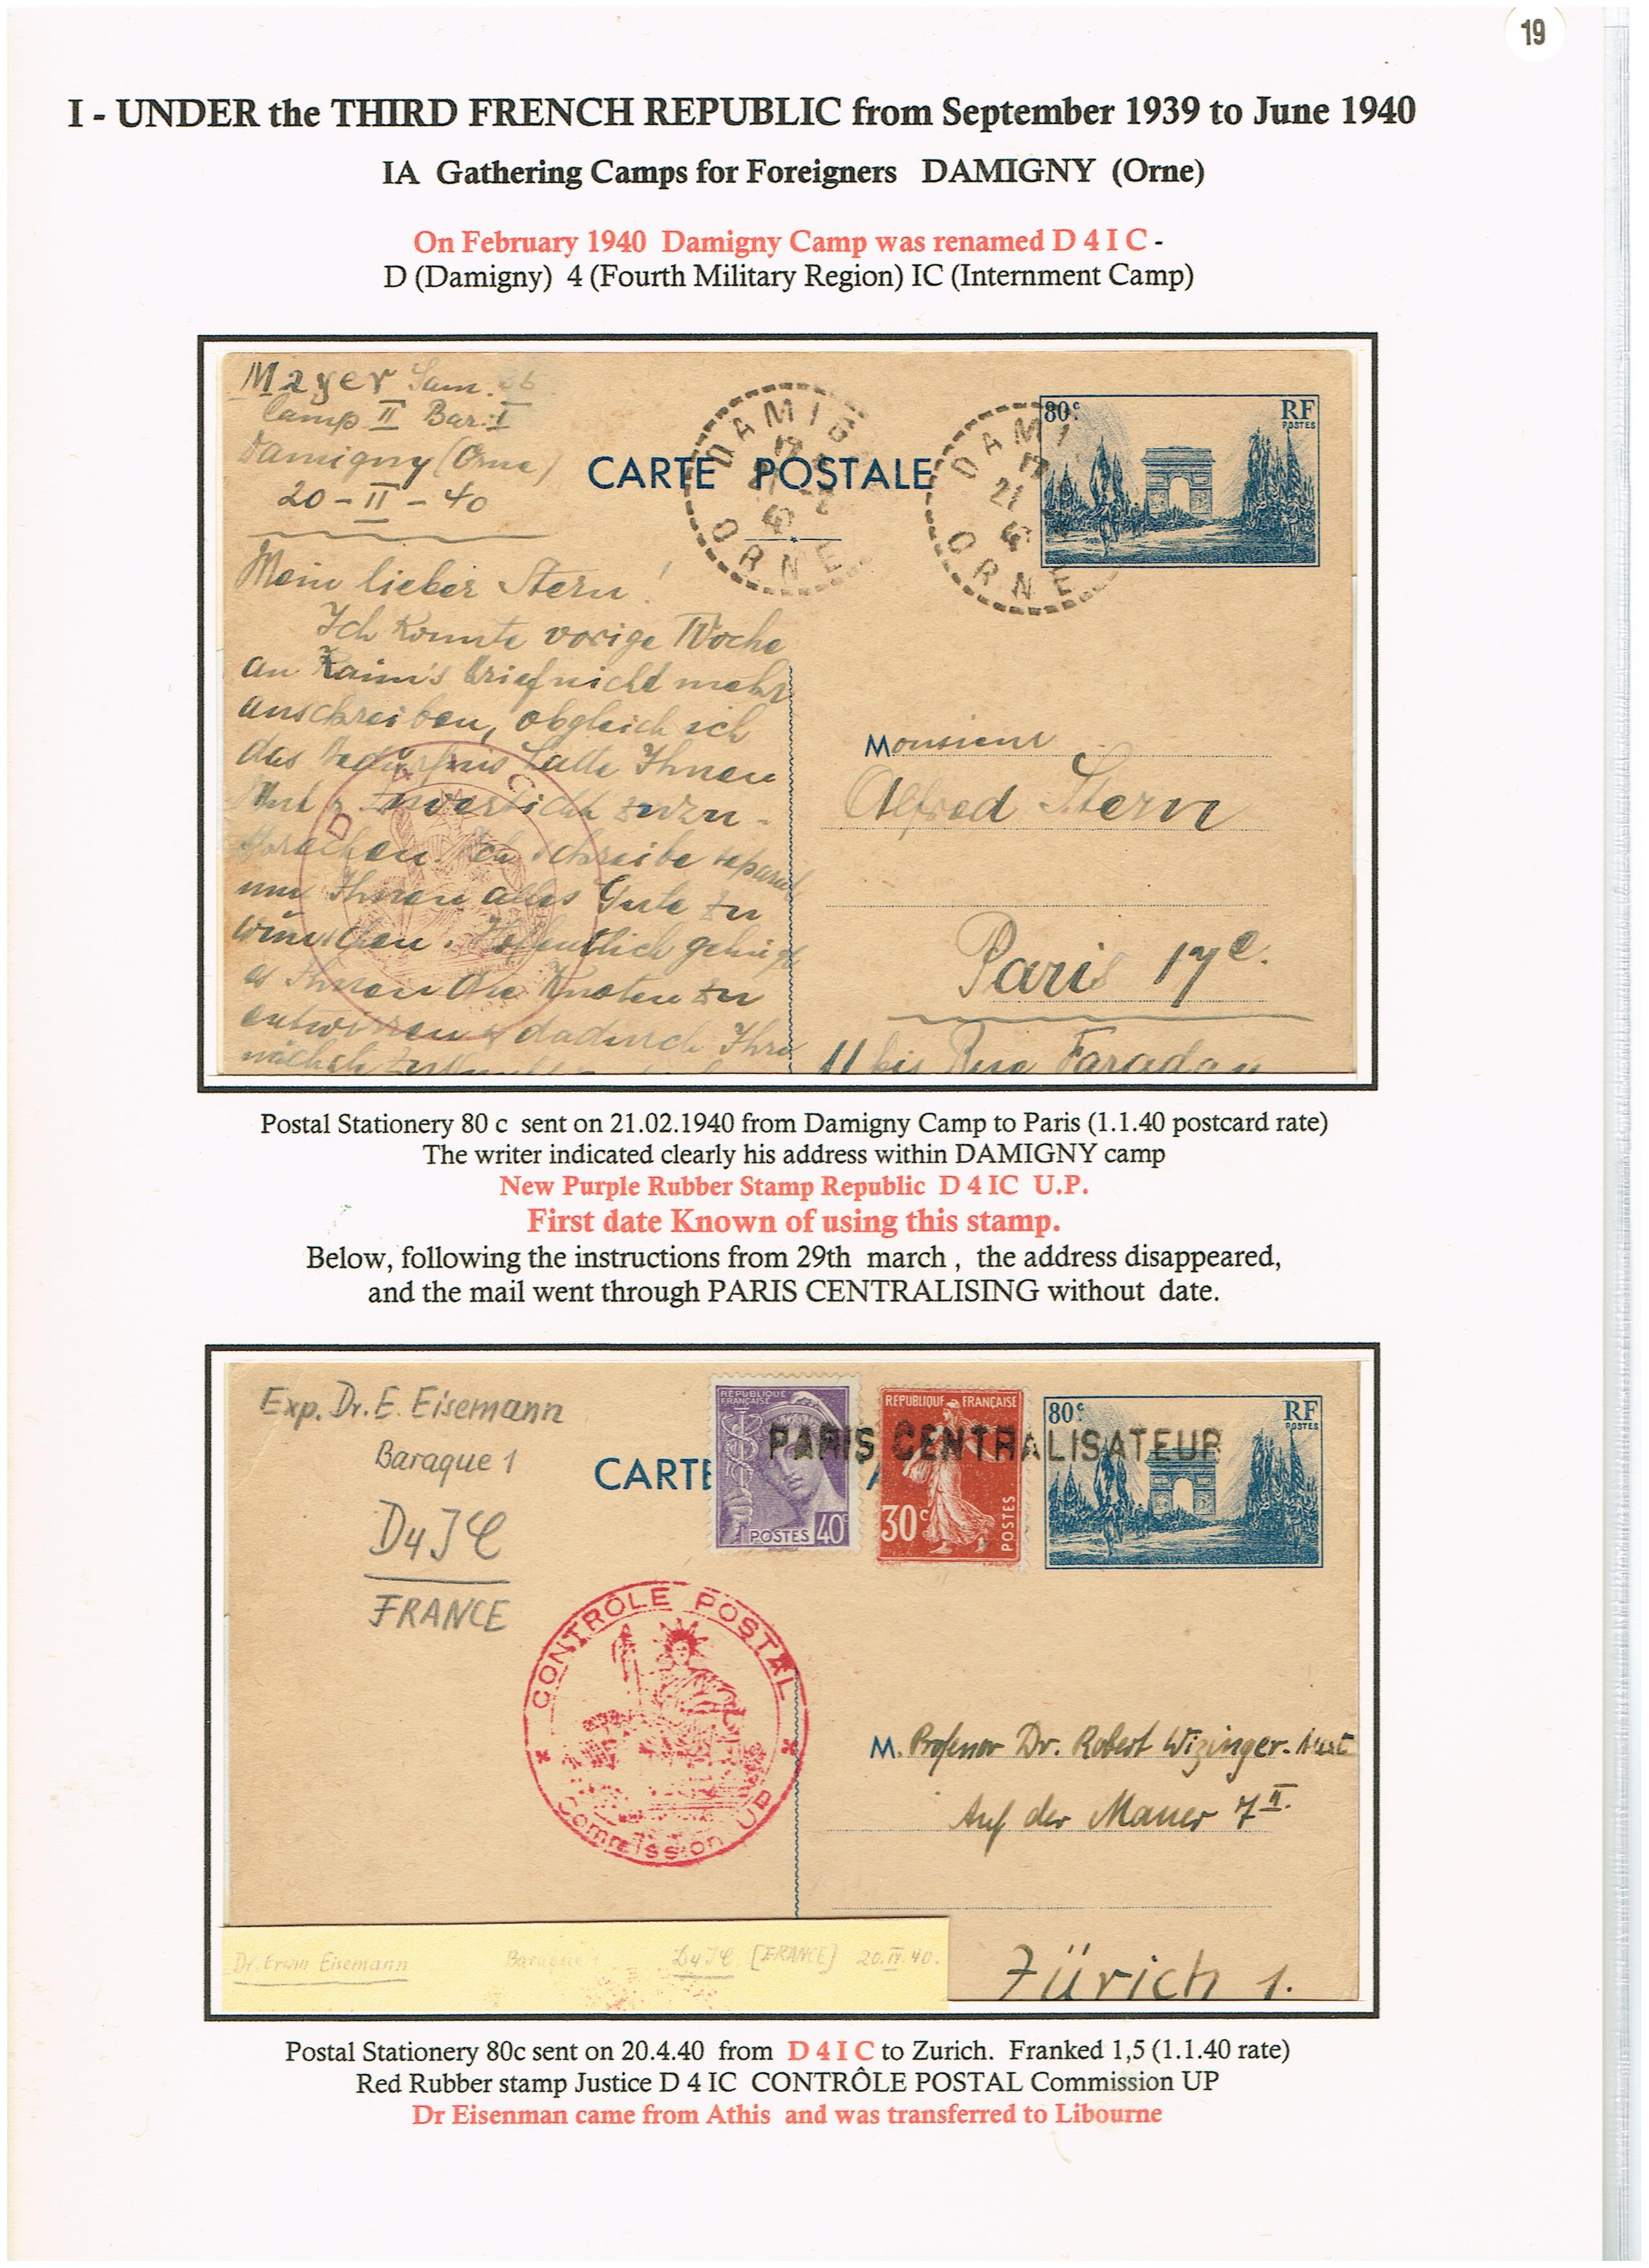 19
I - UNDER the THIRD FRENCH REPUBLIC from September 1939 to June 1940
IA Gathering Camps for Foreigners DAMIGNY (Orne)
On February 1940 Damigny Camp was renamed D 4 I C -
D (Damigny) 4 (Fourth Military Region) IC (Internment Camp)
Mayer Sam.
Camp II Bar. I
Damigny (Orne)
20 - II - 40
DAMIG
17
21 - 2
40
ORNE
DAMI
17
21
40
ORNE
CARTE POSTALE
80c
RF
POSTES
Mein lieber Stern!
Ich konnte vorige Woche
an Kaim's Brief nicht mehr
anschreiben, obgleich ich
das Bedürfnis hatte Ihnen
Mut & Zuversicht zuzu-
sprechen. Ich schreibe separat
um Ihnen alles Gute zu
wünschen. Hoffentlich gelingt
es Ihnen die Knoten zu
entwirren & dadurch Ihre
nächste
D 4 I C
Monsieur
Alfred Stern
Paris 17e.
11 bis Rue Faraday
Postal Stationery 80 c sent on 21.02.1940 from Damigny Camp to Paris (1.1.40 postcard rate)
The writer indicated clearly his address within DAMIGNY camp
New Purple Rubber Stamp Republic D 4 IC U.P.
First date Known of using this stamp.
Below, following the instructions from 29th march , the address disappeared,
and the mail went through PARIS CENTRALISING without date.
Exp. Dr. E. Eisemann
Baraque 1
D4IC
FRANCE
CARTE
RÉPUBLIQUE FRANÇAISE
POSTES 40c
REPUBLIQUE FRANÇAISE
30c
POSTES
80c
RF
POSTES
PARIS CENTRALISATEUR
CONTRÔLE POSTAL
Commission UP
M. Professor Dr. Robert Wizinger-Aust
Auf der Mauer 7 II.
Zürich 1.
Dr. Erwin Eisemann Baraque 1 D4IC [FRANCE] 20.IV.40.
Postal Stationery 80c sent on 20.4.40 from D 4 I C to Zurich. Franked 1,5 (1.1.40 rate)
Red Rubber stamp Justice D 4 IC CONTRÔLE POSTAL Commission UP
Dr Eisenman came from Athis and was transferred to Libourne